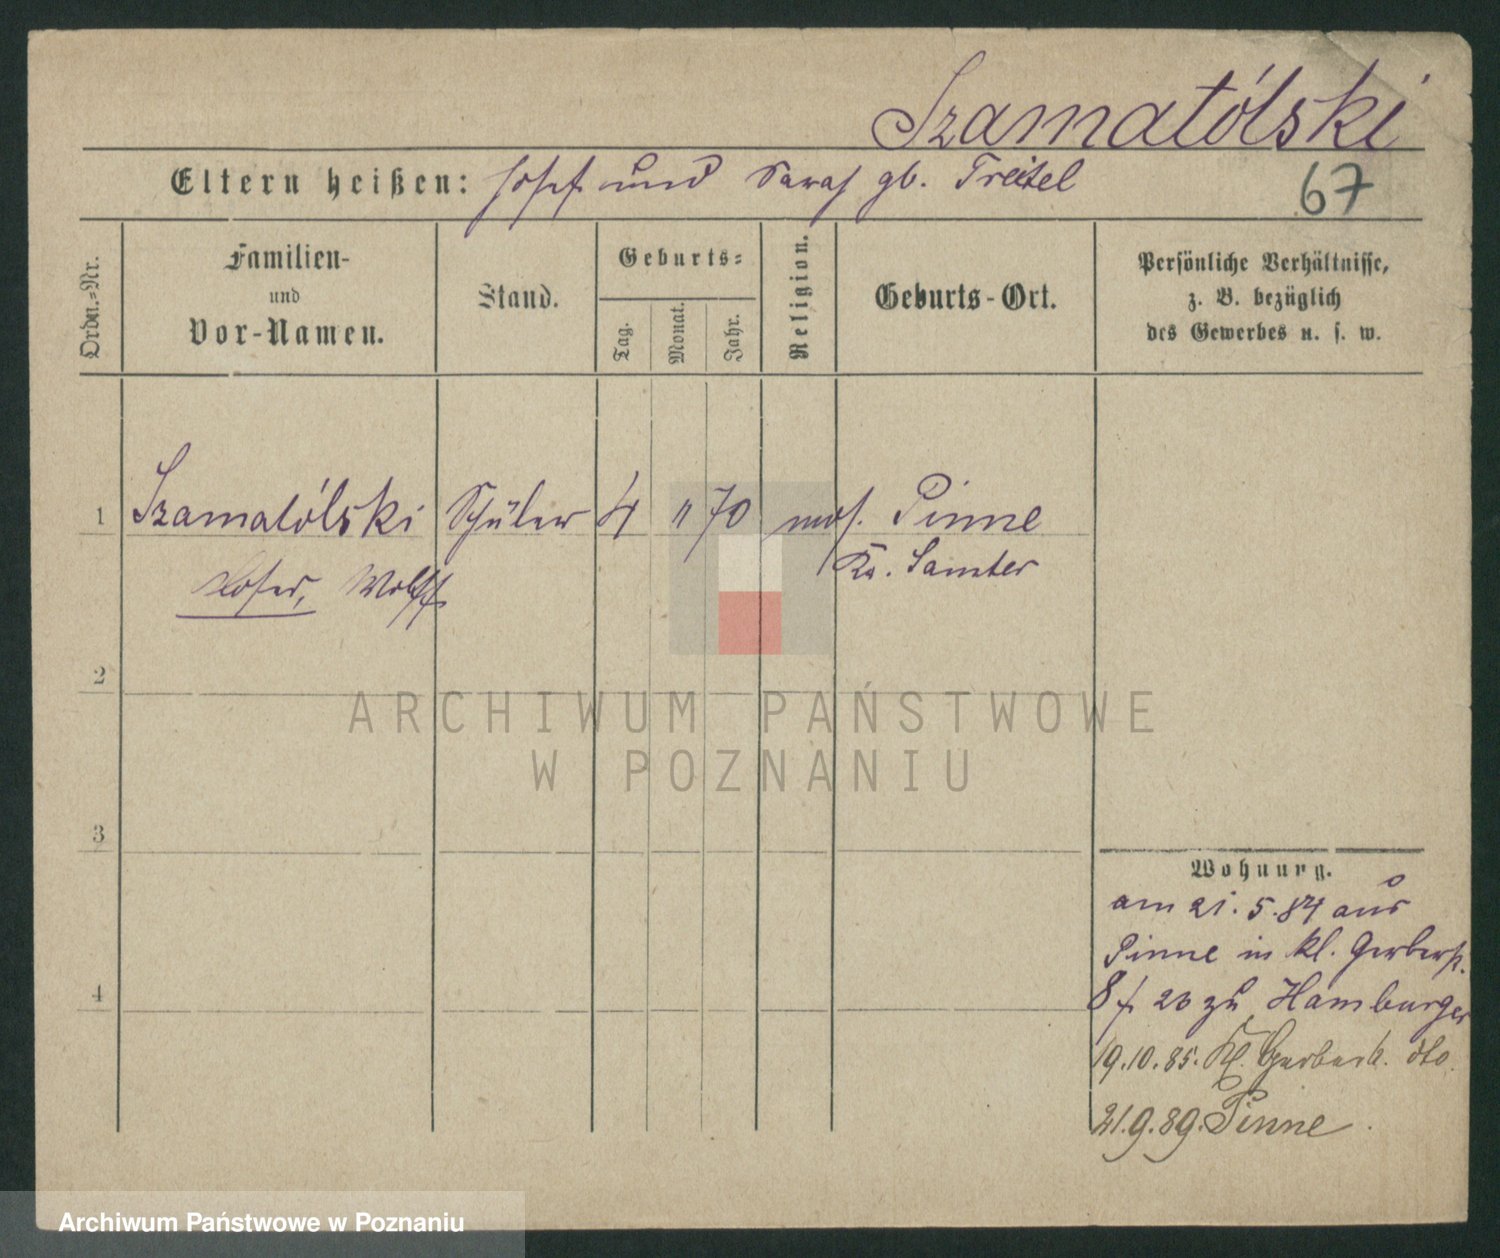 Szamatólski
Eltern heißen: Josef und Sarah gb. Treitel
67
Ordn.=Nr.
Familien-
und
Vor-Namen.
Stand.
Geburts=
Tag.
Monat.
Jahr.
Religion.
Geburts-Ort.
Persönliche Verhältnisse,
z. B. bezüglich
des Gewerbes u. s. w.
1 Szamatólski Schüler 4 11 70 mos. Pinne
Wolff
Kr. Samter
2
3
4
Wohnung.
am 21.5.84 aus
Pinne in kl. Gerberst.
8 f 20 zu Hamburger
19.10.85. Kl. Gerberst. dto.
21.9.89. Pinne.
ARCHIWUM PAŃSTWOWE
W POZNANIU
Archiwum Państwowe w Poznaniu